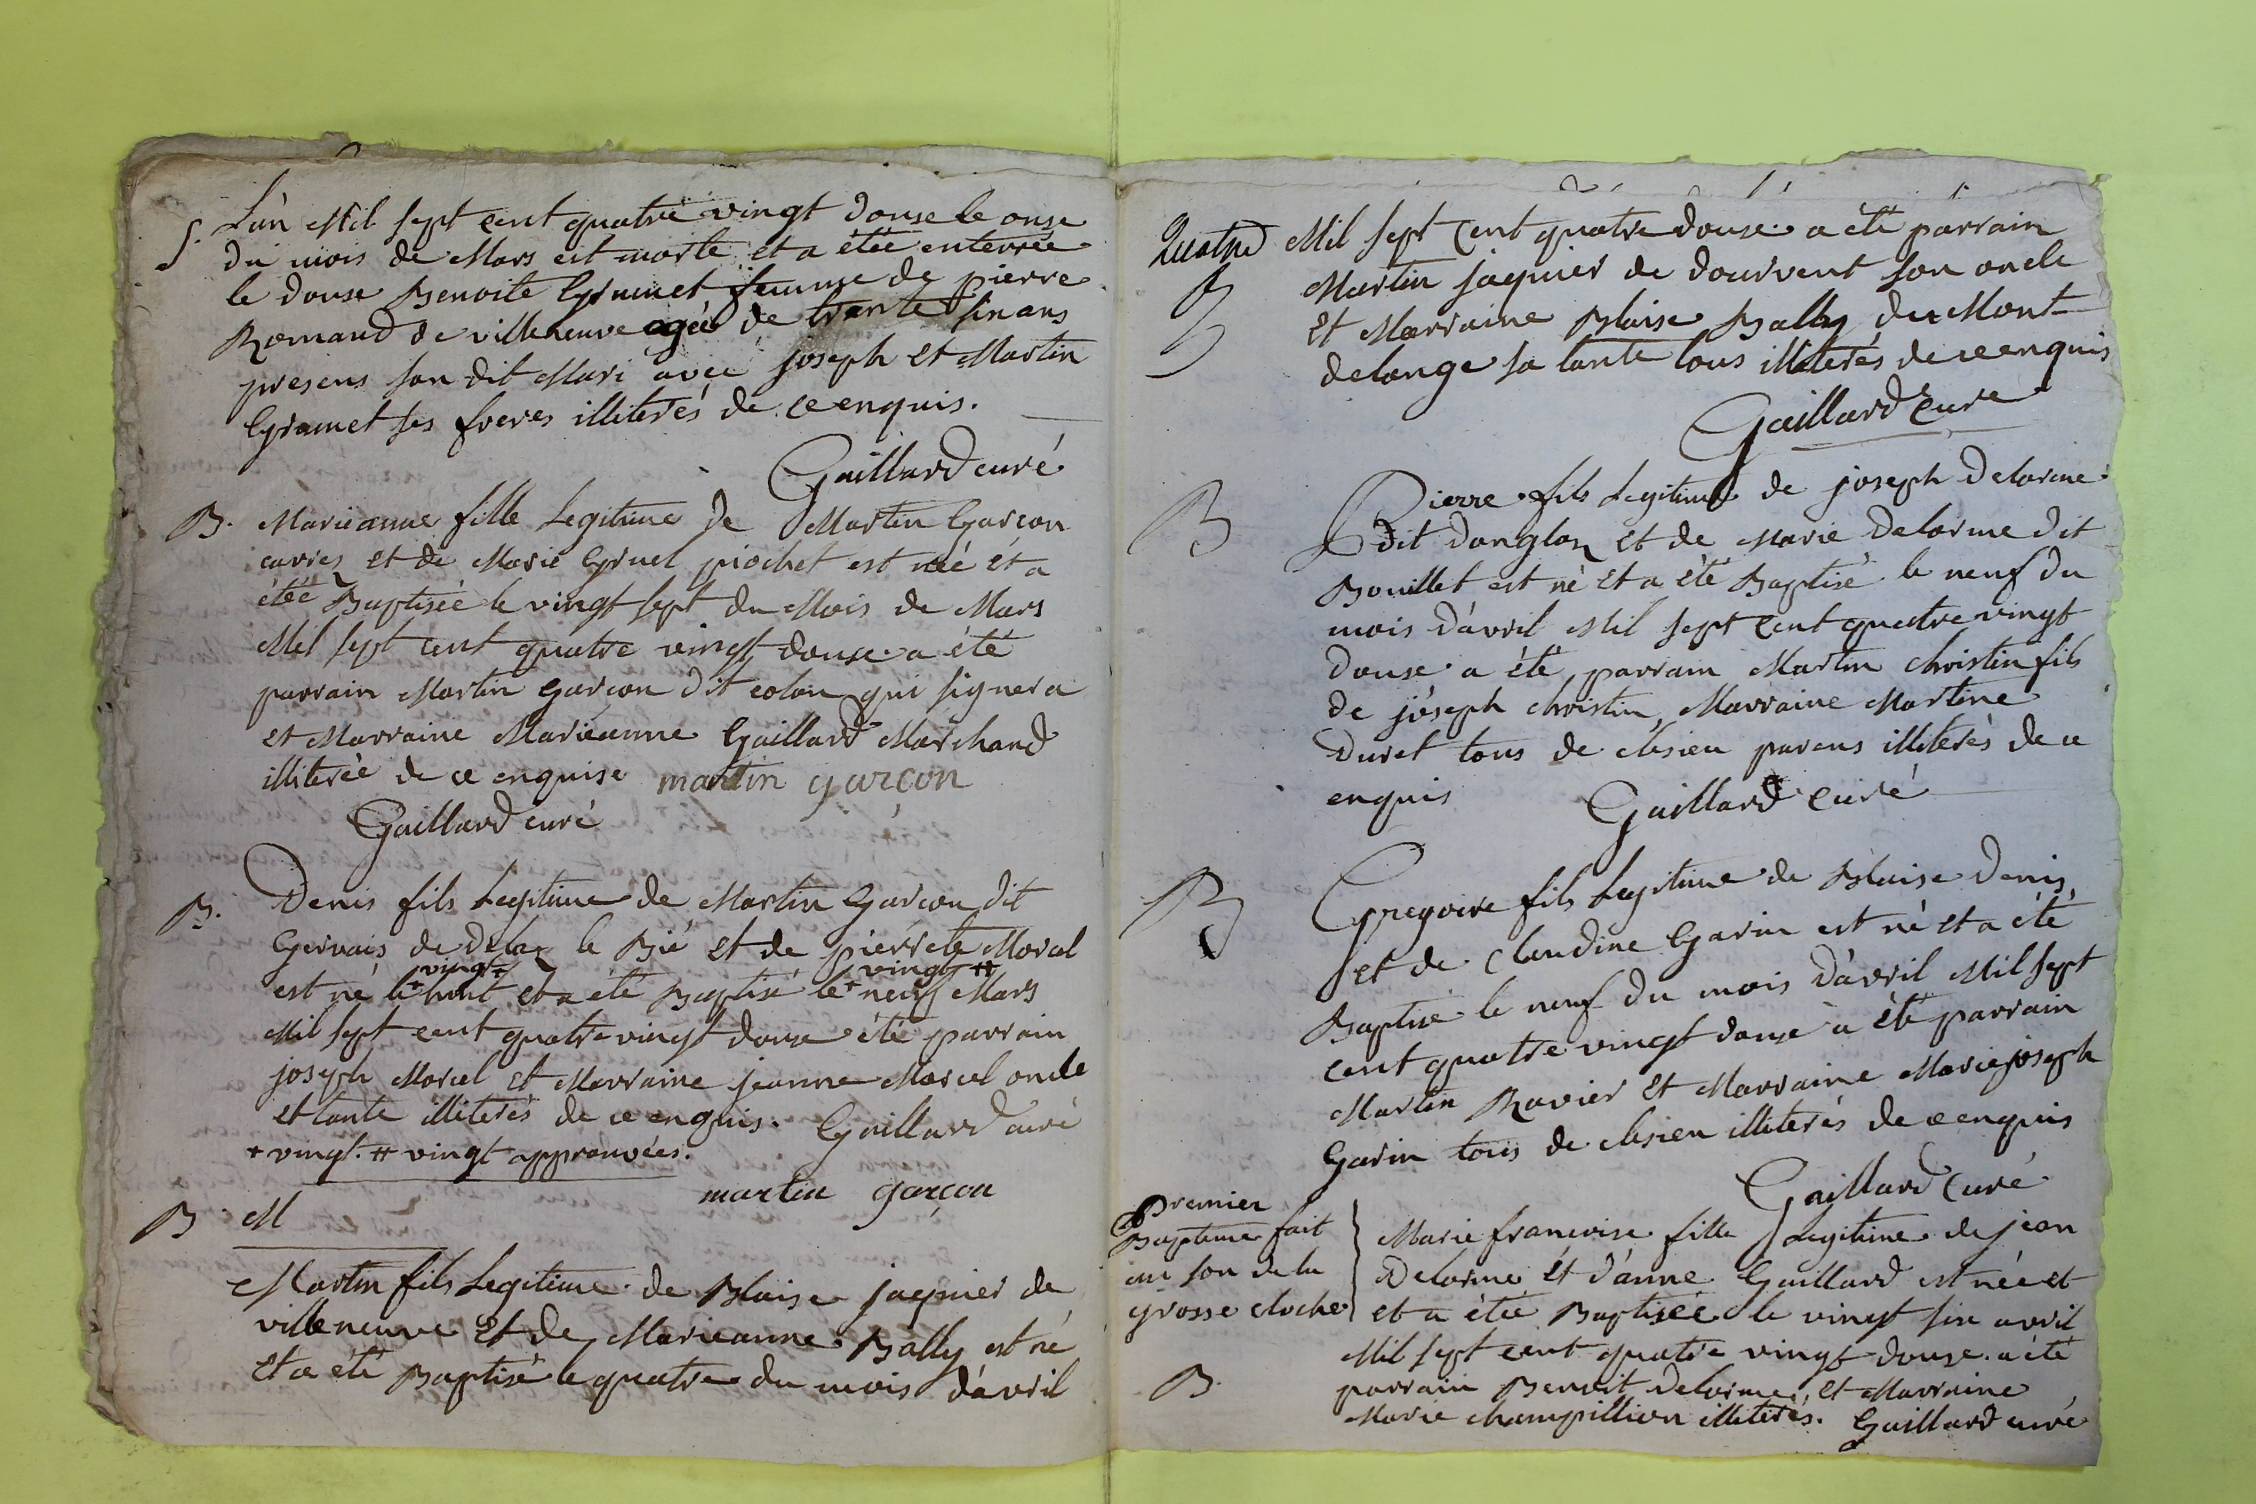 S. L'an Mil sept cent quatre vingt douse le onse
du mois de Mars est morte et a étée enterrée
le douse Benoite Grumet femme de pierre
Romand de villeneuve agée de trante sin ans
presens son dit Mari avec joseph et Martin
Gramet ses freres illiterés de ce enquis.
Gaillard curé
B. Marieanne fille Legitime de Martin Garcon
et de Marie Gruel piochet est née et a
étée Baptisée le vingt sept du Mois de Mars
Mil sept cent quatre vingt douse a été
parrain Martin Garcon dit colon qui signera
et Marraine Marieanne Gaillard Marchand
illiterée de ce enquise martin garçon
Gaillard curé
B. Denis fils Legitime de Martin Garcon dit
Gervais de delaz le Bié et de pierrete Morel
vingt+ vingt #
est né le + huit et a été Baptisé le + neuf Mars
Mil sept cent quatre vingt douse été parrain
joseph Morel et Marraine jeanne Marcel oncle
et tante illiterés de ce enquis. Gaillard curé
+ vingt. # vingt approuvées.
martin garçon
B. M
Martin fils Legitime de Blaise jaquier de
villeneuve et de Marieanne Bally est né
et a été Baptisé le quatre du mois d'avril
Mil sept cent quatre douse a été parrain
Martin jaquier de dourvent son oncle
et Marraine Blaise Bally du Mont
delange sa tante tous illiterés de ce enquis
Gaillard Curé
B Pierre fils Legitime de joseph Delorme
dit danglon et de Marie Delorme dit
Bouillet est né et a été Baptisé le neuf du
mois d'avril Mil sept cent quatre vingt
douse a été parrain Martin christin fils
de joseph christin, Marraine Martine
Duret tous de clesieu parens illiterés de ce
enquis Gaillard Curé
B Gregoire fils Legitime de Blaise Denis,
et de Claudine Garin est né et a été
Baptisé le neuf du mois d'avril Mil sept
cent quatre vingt douse a été parrain
Martin Ravier et Marraine Marie joseph
Garin tous de clesieu illiterés de ce enquis
Gaillard Curé
Premier
Bapteme fait
au son de la
grosse cloche
Marie francoise fille Legitime de jean
Delorme et d'anne Gaillard est née et
et a étée Baptisée le vingt six avril
Mil sept cent quatre vingt douse a été
B. parrain Benoit Delorme, et Marraine
Marie champillion illiterés. Gaillard curé